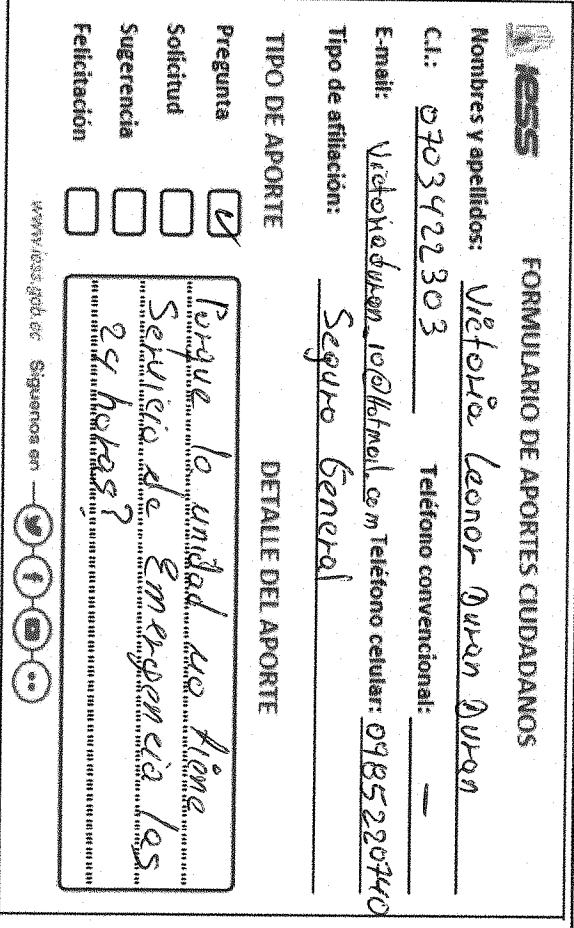 iess
FORMULARIO DE APORTES CIUDADANOS
Nombres y apellidos: Victoria Leonor Duran Duran
C.I.: 0703422303 Teléfono convencional: —
E-mail: Victoriaduran_10@Hotmail.com Teléfono celular: 0985220740
Tipo de afiliación: Seguro General
TIPO DE APORTE DETALLE DEL APORTE
Pregunta ✓
Solicitud
Sugerencia
Felicitación
Porque la unidad no tiene
Servicio de Emergencia las
24 horas?
www.iess.gob.ec Siguenos en